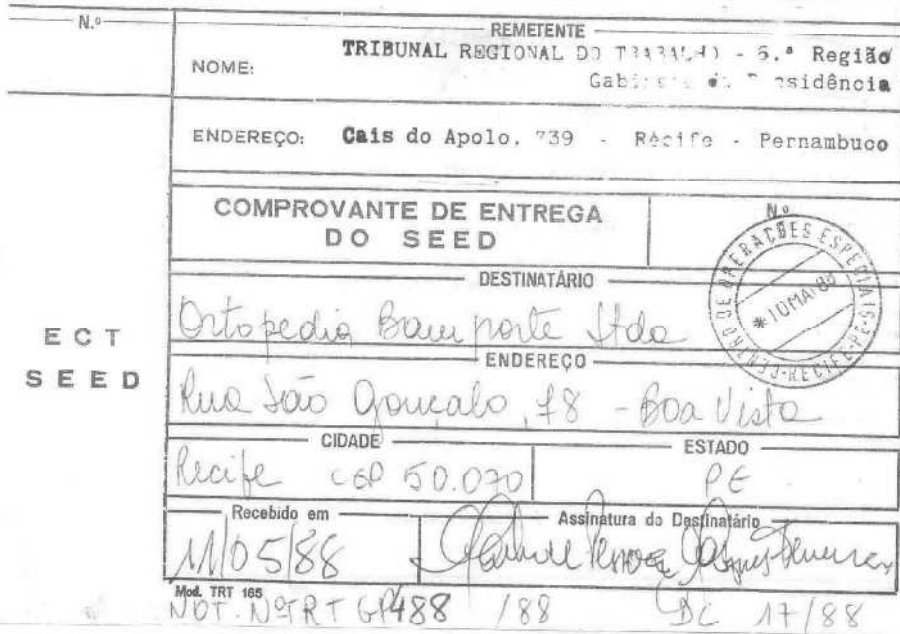 N.º
REMETENTE
NOME: TRIBUNAL REGIONAL DO TRABALHO - 6.ª Região
Gabinete da Presidência
ENDEREÇO: Cais do Apolo, 739 - Recife - Pernambuco
COMPROVANTE DE ENTREGA
DO SEED
N.º
CENTRO DE OPERAÇÕES ESPECIAIS-RECIFE-PE
*10MAI88
DESTINATÁRIO
Ortopedia Bom porte Ltda
ECT
SEED
ENDEREÇO
Rua São Gonçalo, 78 - Boa Vista
CIDADE
ESTADO
Recife CEP 50.070
PE
Recebido em
Assinatura do Destinatário
11/05/88
Mod. TRT 165
NOT. Nº TRT GP 488 /88 DC 17/88